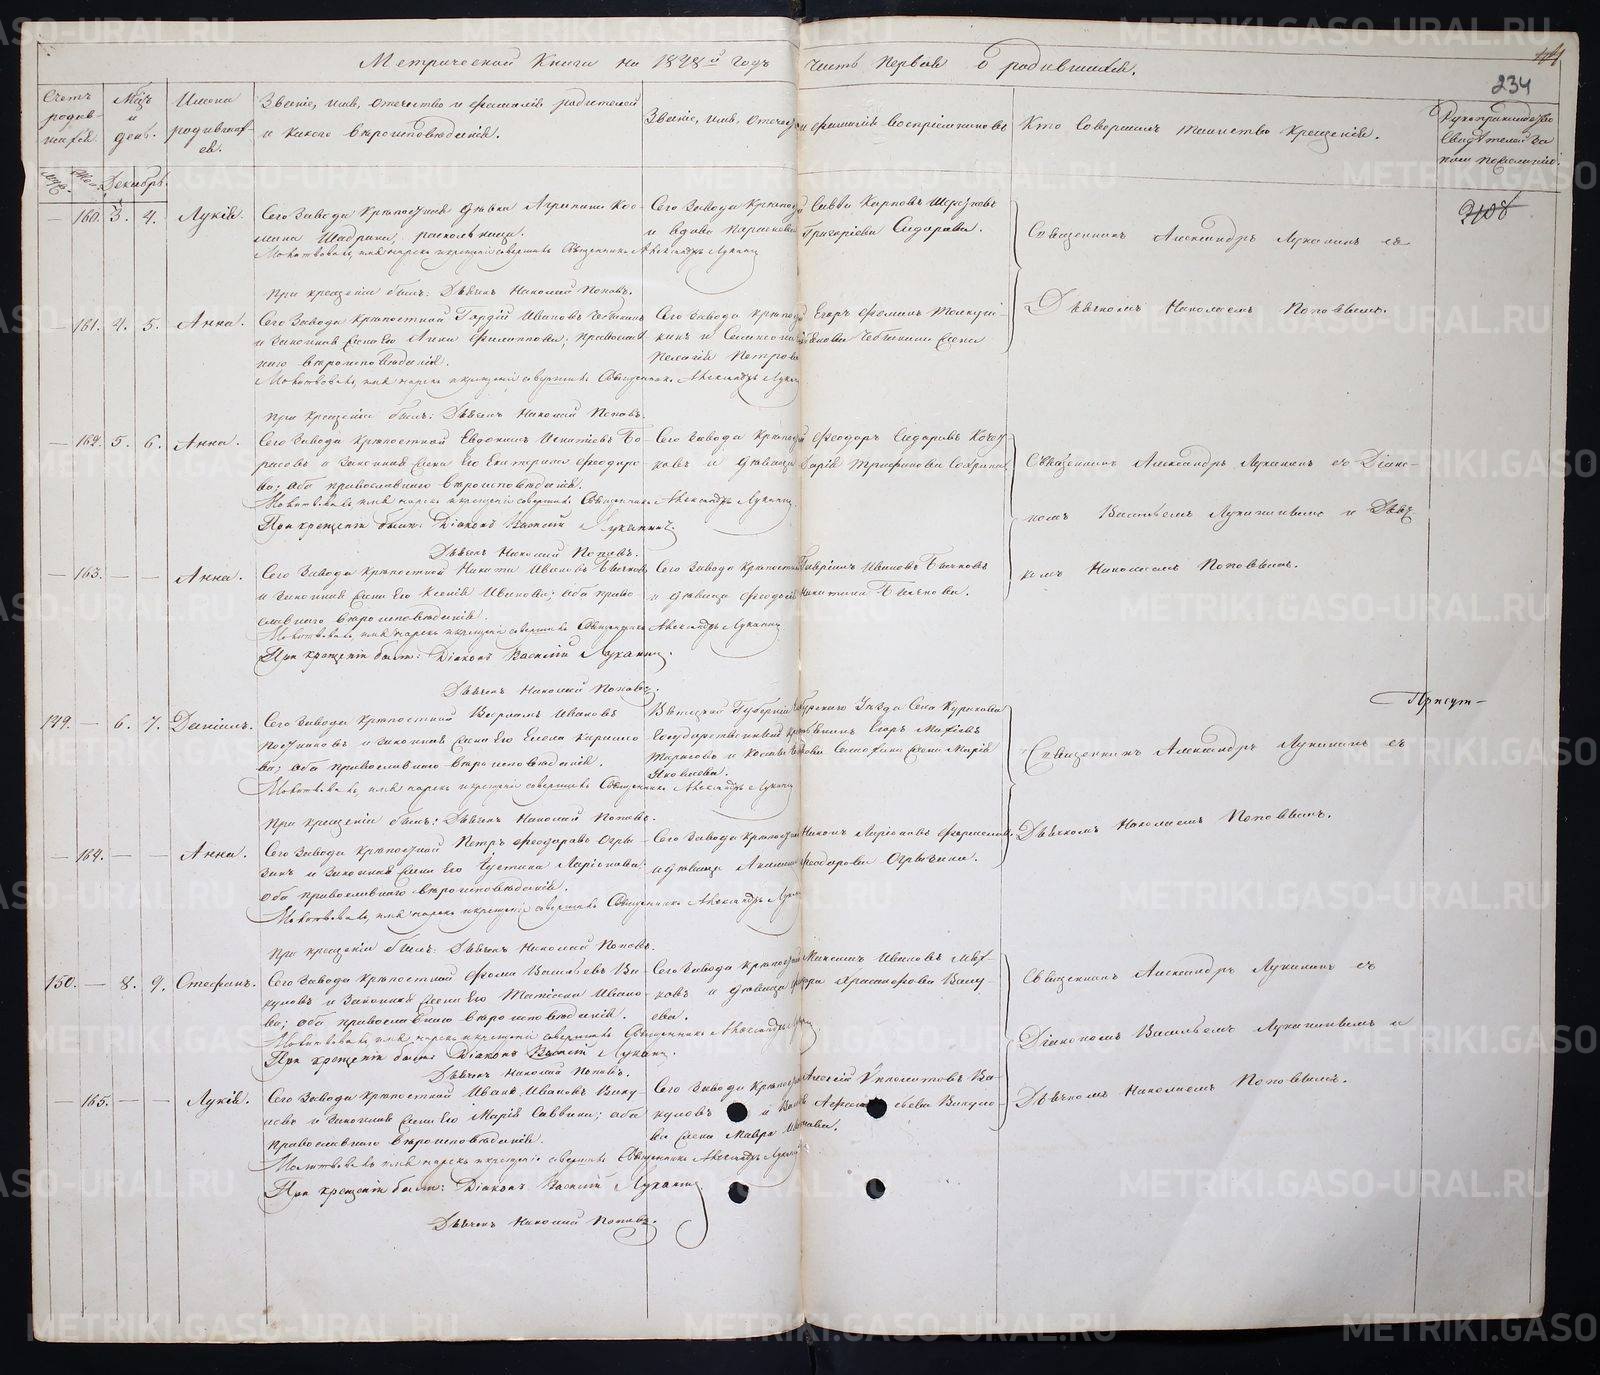 Метрической Книги на 1848й годъ часть первая о родившихся.
234
Счетъ родив-шихся.
Мѣц. и день.
Имена родивших-ся.
Званіе, имя, отечество и фамилія родителей
и какого вѣроисповѣданія.
Званіе, имя, отечество и фамилія воспріемниковъ
Кто совершалъ таинство крещенія.
Рукоприкладство свидѣтелей записи по желанію.
Декабрь.
— 160. 3. 4. Лукія.
Сего Завода Крѣпостная дѣвка Агрипина Кос-
мина Шадрина, раскольница.
Молитвовалъ, имя нарекъ и крещеніе совершилъ Священникъ Александръ Луканинъ
При крещеніи былъ: Дьячекъ Николай Поповъ.
Сего Завода Крѣпостн Савва Карповъ
и вдова Параскева Григоріева Сидорова.
Священникъ Александръ Луканинъ съ
Дьячкомъ Николаемъ Поповымъ.
— 161. 4. 5. Анна.
Сего Завода Крѣпостной Гордій Ивановъ
и Законная жена Его Анна Филиппова; православ
наго вѣроисповѣданія.
Молитвовалъ, имя нарекъ и крещеніе совершилъ Священникъ Александръ Лукан
При крещеніи былъ: Дьячекъ Николай Поповъ.
Сего Завода Крѣпост Егоръ Фоминъ
жена
Пелагія Петров
— 162. 5. 6. Анна.
Сего Завода Крѣпостной Евдокимъ Игнатіевъ Бо-
рисовъ и Законная жена Его Екатерина Феодоро-
ва; оба православнаго вѣроисповѣданія.
Молитвовалъ имя нарекъ и крещеніе совершилъ Священникъ Александръ Луканинъ
При крещеніи были: Діаконъ Василій Луканинъ.
Дьячекъ Николай Поповъ.
Сего Завода Крѣпост Феодоръ Сидоровъ
ковъ и дѣвица Дарія Трифонова
Священникъ Александръ Луканинъ съ Діако-
номъ Васильемъ Луканинымъ и Дьяч-
комъ Николаемъ Поповымъ.
— 163. — — Анна.
Сего Завода Крѣпостной Никита Ивановъ Бычковъ
и Законная жена Его Ксенія Иванова; оба право-
славнаго вѣроисповѣданія.
Молитвовалъ, имя нарекъ и крещеніе совершилъ Священникъ Александръ Луканинъ
При крещеніи были: Діаконъ Василій Луканинъ.
Дьячекъ Николай Поповъ.
Сего Завода Крѣпостн Гавріилъ Ивановъ Бычковъ
и дѣвица Феодосія Никитина Бычкова.
149. — 6. 7. Даніилъ.
Сего Завода Крѣпостной Варлаамъ Ивановъ
Постниковъ и Законная жена Его Елена Кирилло-
ва; оба православнаго вѣроисповѣданія.
Молитвовалъ, имя нарекъ и крещеніе совершилъ Священникъ Александръ Луканинъ
При крещеніи былъ: Дьячекъ Николай Поповъ.
Вятской Губерніи Уѣзда Села
Государственный Егоръ
жена Марія
Яковлева.
Священникъ Александръ Луканинъ съ
Дьячкомъ Николаемъ Поповымъ.
Присут-
— 164. — — Анна.
Сего Завода Крѣпостной Петръ Феодоровъ Огры-
зинъ и Законная жена Его Іустина Ларіонова
оба православнаго вѣроисповѣданія.
Молитвовалъ, имя нарекъ и крещеніе совершилъ Священникъ Александръ Лукан
При крещеніи былъ: Дьячекъ Николай Поповъ.
Сего Завода Крѣпост Никонъ Ларіоновъ
и дѣвица Акилина Феодорова Огрызина.
150. — 8. 9. Стефанъ.
Сего Завода Крѣпостной Фома Васильевъ Ва-
куловъ и Законная жена Его Татіана Ивано-
ва; оба православнаго вѣроисповѣданія.
Молитвовалъ, имя нарекъ и крещеніе совершилъ Священникъ Александръ Лукан
При крещеніи были: Діаконъ Василій Луканинъ.
Дьячекъ Николай Поповъ.
Сего Завода Крѣпостной Максимъ Ивановъ
ковъ и дѣвица
ева.
Священникъ Александръ Луканинъ съ
Діакономъ Васильемъ Луканинымъ и
Дьячкомъ Николаемъ Поповымъ.
— 165. — — Лукія.
Сего Завода Крѣпостной Иванъ Ивановъ Ваку-
ловъ и Законная жена Его Марія Саввина; оба
православнаго вѣроисповѣданія.
Молитвовалъ имя нарекъ и крещеніе совершилъ Священникъ Александръ Лукан
При крещеніи были: Діаконъ Василій Луканинъ
Дьячекъ Николай Поповъ.
Сего Завода Крѣпост Алексій Ва-
куловъ и Вакуло-
ва жена Мавра
METRIKI.GASO-URAL.RU